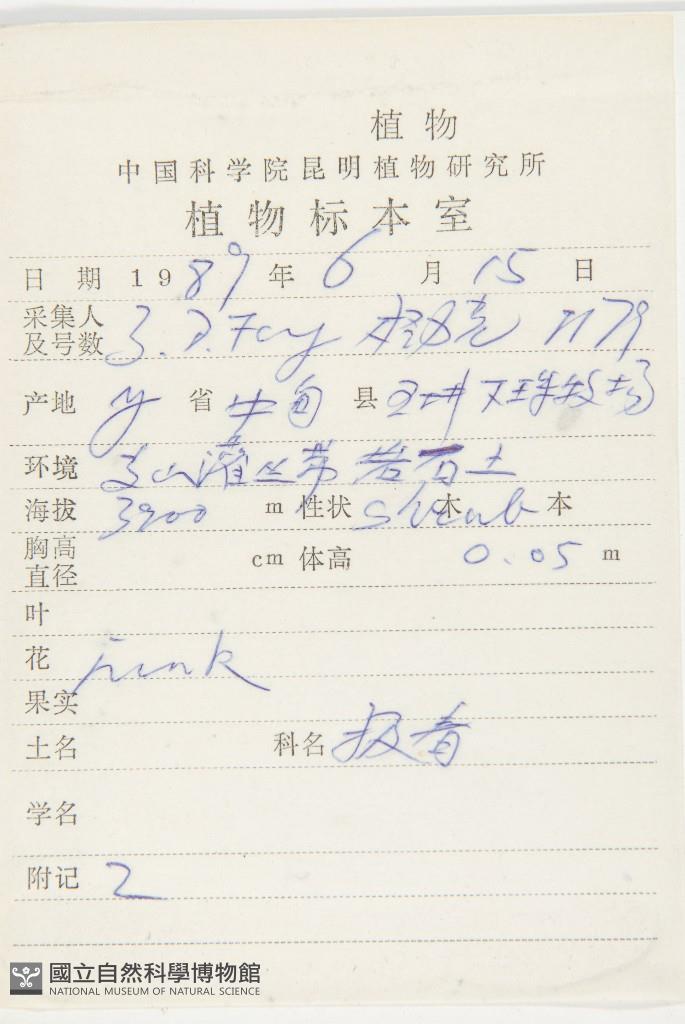 植物
中国科学院昆明植物研究所
植物标本室
日 期 1989年 6 月 15 日
采集人
及号数 J.D.Fay 1179
产地 y 省 中甸 县
环境 高山灌丛带 岩石土
海拔 3900 m 性状 shrub 木 本
胸高
直径 cm 体高 0.05 m
叶
花 pink
果实
土名 科名
学名
附记 2
國立自然科學博物館
NATIONAL MUSEUM OF NATURAL SCIENCE